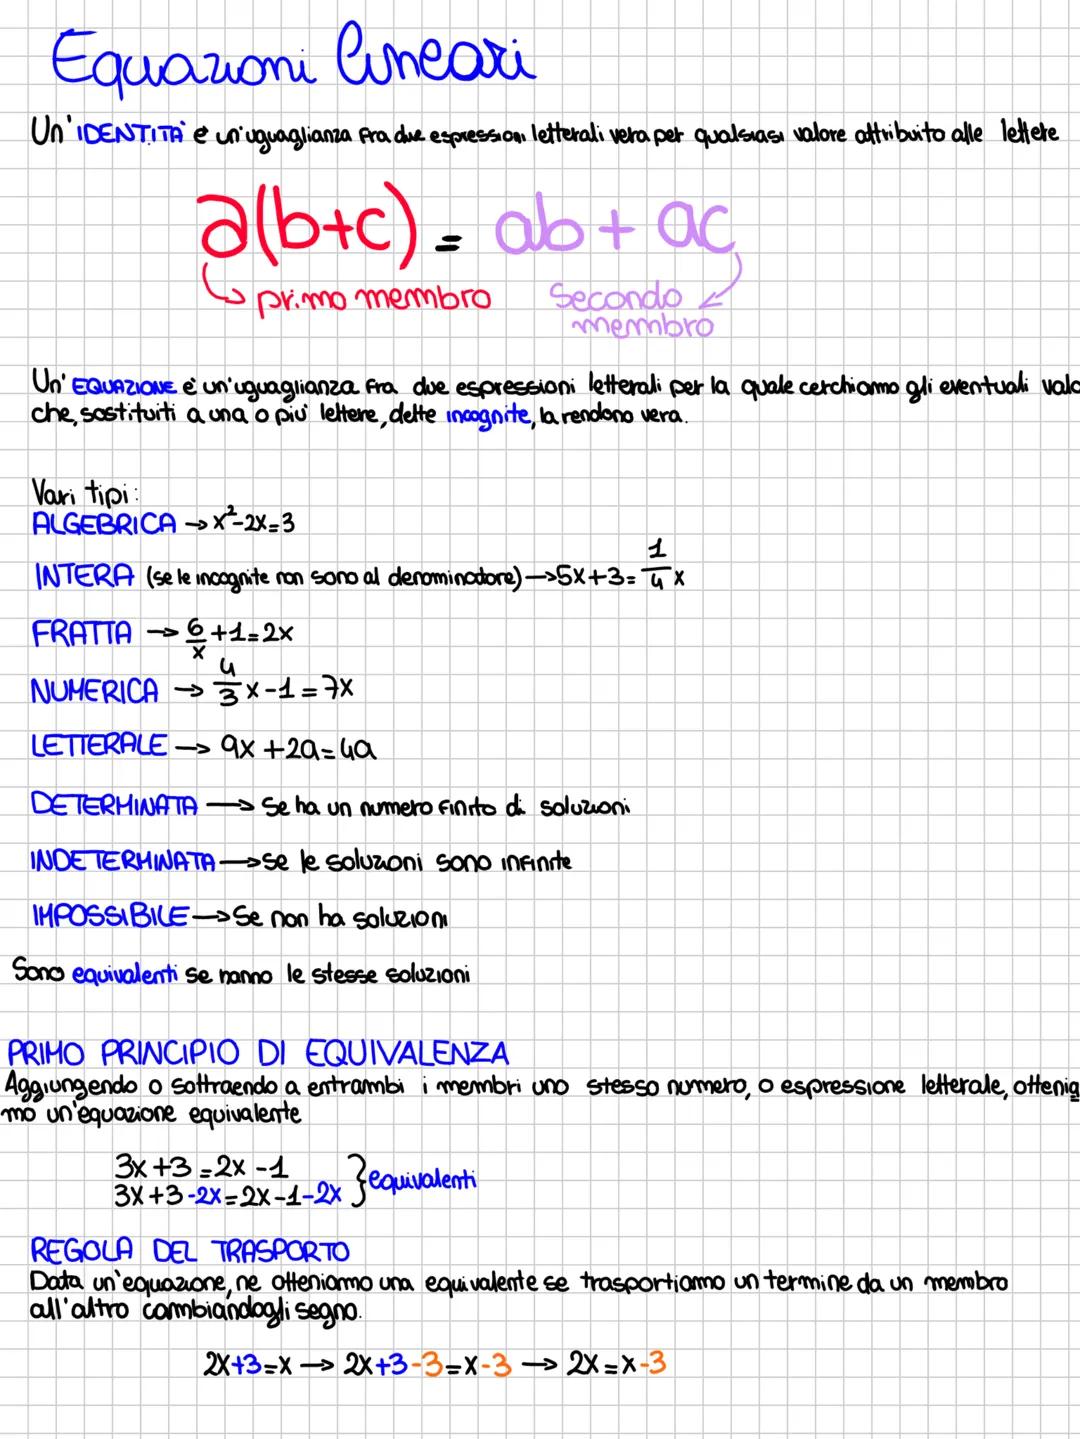 Equazioni lineari
Un'IDENTITA' è un'uguaglianza fra due espressioni letterali vera per qualsiasi valore attribuito alle lettere
a(b+c) = ab + ac
primo membro secondo
membro
Un' EQUAZIONE è un'uguaglianza fra due espressioni letterali per la quale cerchiamo gli eventuali valo
che, sostituiti a una o più lettere, dette incognite, la rendono vera.
Vari tipi:
ALGEBRICA → x²-2x=3
INTERA (se le incognite non sono al denominatore) → 5x+3= 1/4 x
FRATTA → 6/x +1=2x
NUMERICA → 4/3 x-1=7x
LETTERALE → 9x +2a=4a
DETERMINATA → Se ha un numero finito di soluzioni
INDETERMINATA → se le soluzioni sono infinite
IMPOSSIBILE → Se non ha soluzioni
Sono equivalenti se hanno le stesse soluzioni
PRIMO PRINCIPIO DI EQUIVALENZA
Aggiungendo o sottraendo a entrambi i membri uno stesso numero, o espressione letterale, ottenia
mo un'equazione equivalente
3x+3=2x-1
3x+3-2x=2x-1-2x } equivalenti
REGOLA DEL TRASPORTO
Data un'equazione, ne otteniamo una equivalente se trasportiamo un termine da un membro
all'altro cambiandogli segno.
2x+3=x → 2x+3-3=x-3 → 2x=x-3